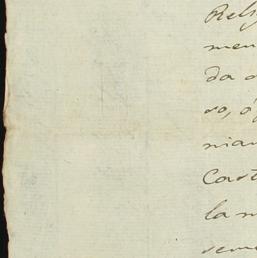 Rel
men
da
so, o
nian
Cast
la m
seme